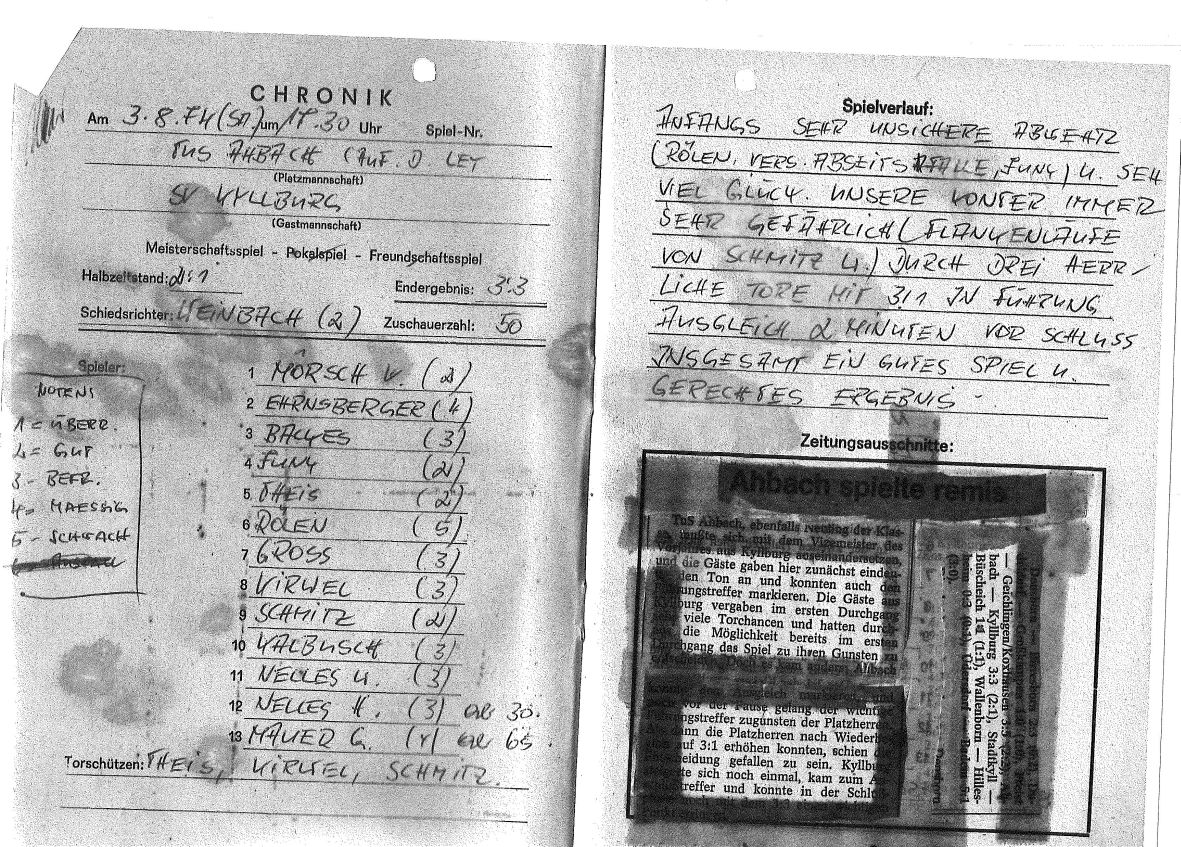 CHRONIK
Am 3.8.74 (SA.) um 17.30 Uhr Spiel-Nr.
TUS AHBACH (AUF. D. LEY
(Platzmannschaft)
SV KYLLBURG
(Gastmannschaft)
Meisterschaftsspiel - Pokalspiel - Freundschaftsspiel
Halbzeitstand: 2:1 Endergebnis: 3:3
Schiedsrichter: MEINBACH (2) Zuschauerzahl: 50
Spieler:
NOTEN:
1 = ÜBERR.
2 = GUT
3 - BEFR.
4 = MAESSIG
5 - SCHWACH
1 MÖRSCH K. (2)
2 EHRNSBERGER (4)
3 BALLES (3)
4 JUNK (2)
5 THEIS (2)
6 RÖLEN (5)
7 GROSS (3)
8 KIRWEL (3)
9 SCHMITZ (2)
10 KALBUSCH (3)
11 NELLES U. (3)
12 NELLES H. (3) AB 30.
13 MAUER G. (4) AB 65.
Torschützen: THEIS, KIRWEL, SCHMITZ.
Spielverlauf:
ANFANGS SEHR UNSICHERE ABWEHR
(RÖLEN, VERS. ABSEITSFALLE, JUNK) U. SEH
VIEL GLÜCK. UNSERE KONTER IMMER
SEHR GEFÄHRLICH (FLANKENLÄUFE
VON SCHMITZ U.) DURCH DREI HERR-
LICHE TORE MIT 3/1 IN FÜHRUNG
AUSGLEICH 2 MINUTEN VOR SCHLUSS
INSGESAMT EIN GUTES SPIEL U.
GERECHTES ERGEBNIS -
Zeitungsausschnitte:
Ahbach spielte remis
TuS Ahbach, ebenfalls Neuling der Klas-
mußte sich mit dem Vizemeister des
Vorjahres aus Kyllburg auseinandersetzen,
und die Gäste gaben hier zunächst eindeu-
den Ton an und konnten auch den
Führungstreffer markieren. Die Gäste aus
Kyllburg vergaben im ersten Durchgang
viele Torchancen und hatten durch-
die Möglichkeit bereits im ersten
Durchgang das Spiel zu ihren Gunsten zu
entscheiden. Doch es kam anders. Ahbach
konnte den Ausgleich markieren und
noch vor der Pause gelang der wichtige
Führungstreffer zugunsten der Platzherren.
Als dann die Platzherren nach Wiederbe-
auf 3:1 erhöhen konnten, schien die
Entscheidung gefallen zu sein. Kyllburg
sich noch einmal, kam zum An-
treffer und konnte in der Schluß-
— Geichlingen/Koxhausen 3:3
bach — Kyllburg 3:3 (2:1), Stadtkyll —
Büscheich 1:1 (1:1), Wallenborn — Hilles-
heim 0:3